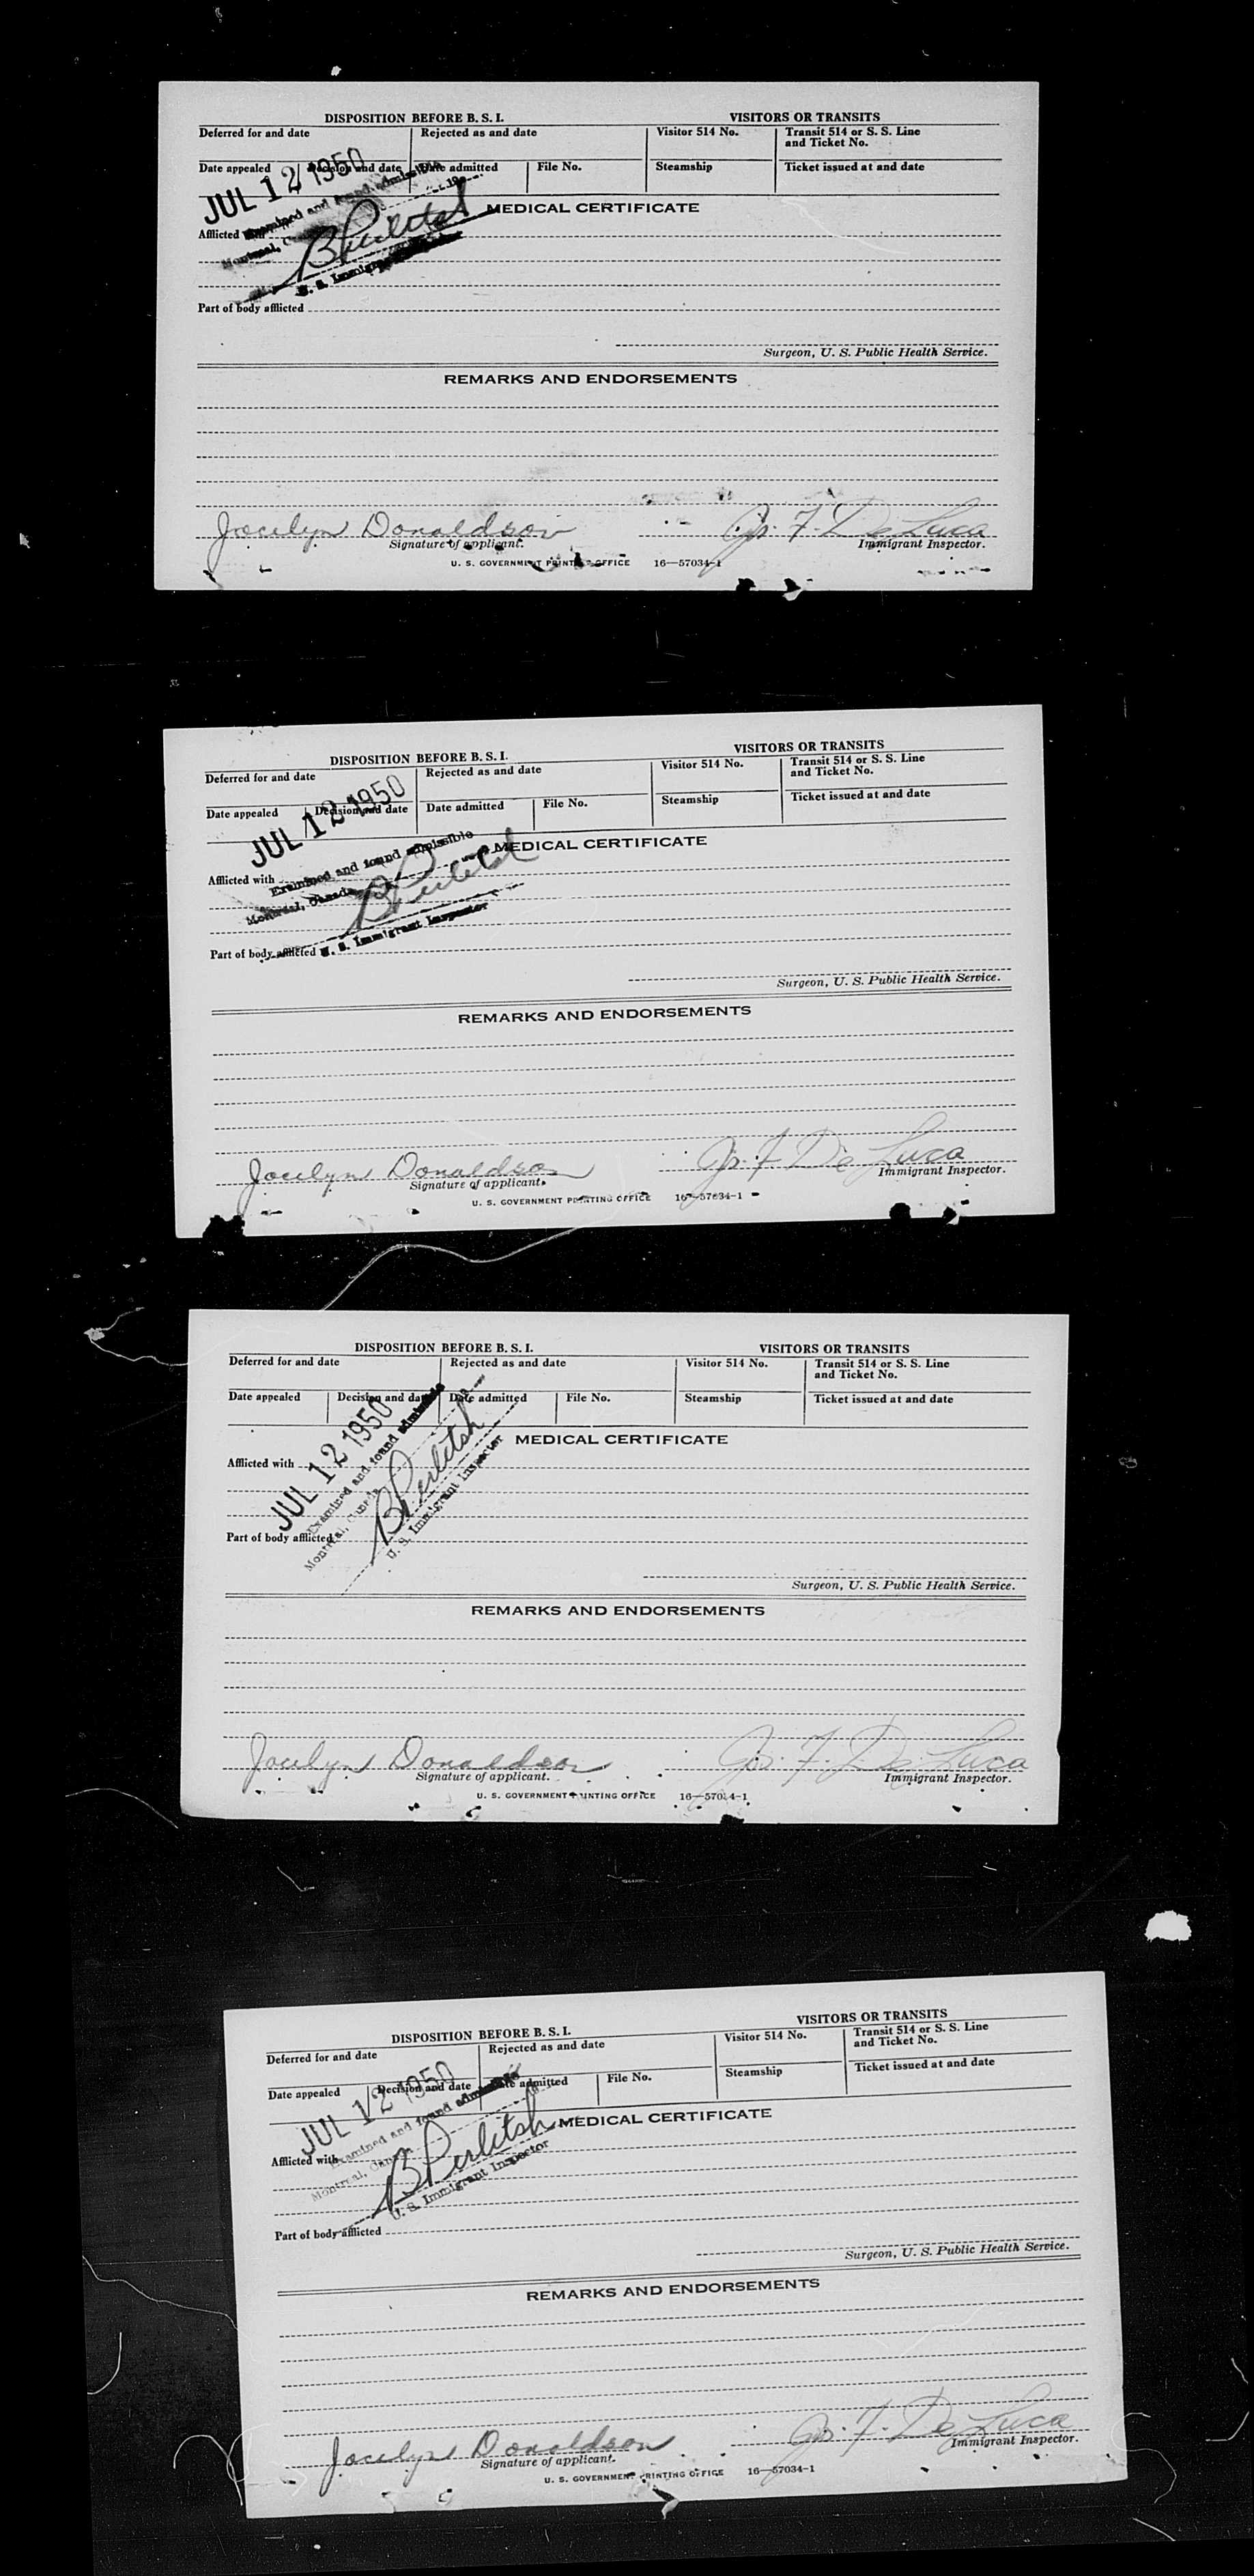 DISPOSITION BEFORE B. S. I. VISITORS OR TRANSITS
Deferred for and date Rejected as and date Visitor 514 No. Transit 514 or S. S. Line
and Ticket No.
Date appealed Decision and date Date admitted File No. Steamship Ticket issued at and date
JUL 12 1950
Examined and found admissible
MEDICAL CERTIFICATE
Afflicted
Montreal,
B Perlitsh
U. S. Immigrant
Part of body afflicted
Surgeon, U. S. Public Health Service.
REMARKS AND ENDORSEMENTS
Jocelyn Donaldson Jos. F. De Luca
Signature of applicant. Immigrant Inspector.
U. S. GOVERNMENT PRINTING OFFICE 16—57034-1
DISPOSITION BEFORE B. S. I. VISITORS OR TRANSITS
Deferred for and date Rejected as and date Visitor 514 No. Transit 514 or S. S. Line
and Ticket No.
Date appealed Decision and date Date admitted File No. Steamship Ticket issued at and date
JUL 12 1950
MEDICAL CERTIFICATE
Examined and found admissible
Afflicted with
Montreal, Canada
B Perlitsh
U. S. Immigrant Inspector
Part of body afflicted
Surgeon, U. S. Public Health Service.
REMARKS AND ENDORSEMENTS
Jocelyn Donaldson Jos. F. De Luca
Signature of applicant. Immigrant Inspector.
U. S. GOVERNMENT PRINTING OFFICE 16—57034-1
DISPOSITION BEFORE B. S. I. VISITORS OR TRANSITS
Deferred for and date Rejected as and date Visitor 514 No. Transit 514 or S. S. Line
and Ticket No.
Date appealed Decision and date Date admitted File No. Steamship Ticket issued at and date
JUL 12 1950
MEDICAL CERTIFICATE
Afflicted with
Examined and found admissible
Montreal, Canada
B Perlitsh
U. S. Immigrant Inspector
Part of body afflicted
Surgeon, U. S. Public Health Service.
REMARKS AND ENDORSEMENTS
Jocelyn Donaldson Jos. F. De Luca
Signature of applicant. Immigrant Inspector.
U. S. GOVERNMENT PRINTING OFFICE 16—57034-1
DISPOSITION BEFORE B. S. I. VISITORS OR TRANSITS
Deferred for and date Rejected as and date Visitor 514 No. Transit 514 or S. S. Line
and Ticket No.
Date appealed Decision and date Date admitted File No. Steamship Ticket issued at and date
JUL 12 1950
MEDICAL CERTIFICATE
Examined and found admissible
Afflicted with
Montreal, Canada
B Perlitsh
U. S. Immigrant Inspector
Part of body afflicted
Surgeon, U. S. Public Health Service.
REMARKS AND ENDORSEMENTS
Jocelyn Donaldson Jos. F. De Luca
Signature of applicant. Immigrant Inspector.
U. S. GOVERNMENT PRINTING OFFICE 16—57034-1